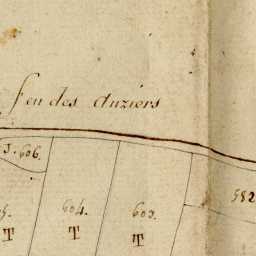 feu des auziers
J. 606.
582
5.
604.
603.
T
T
T